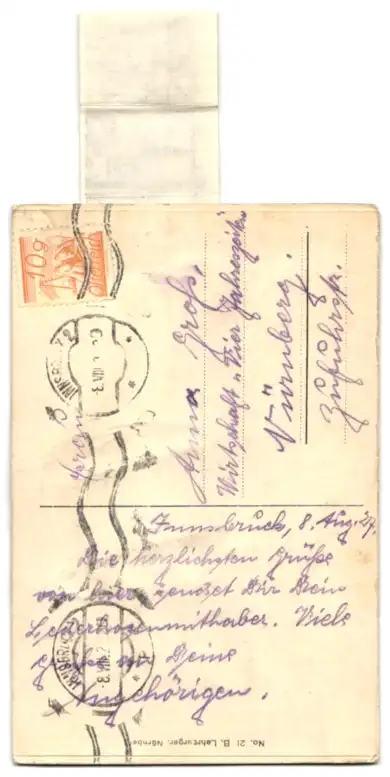 Innsbruck, 8. Aug. 27.
Die herzlichsten Grüße
von hier sendet Dir Dein
Lederhosenmithaber. Viele
Grüße an Deine
Angehörigen.
Fräulein
Anna Groß.
Wirtschaft "Vier Jahreszeiten"
Nürnberg.
Zufuhrstr.
10g
INNSBRUCK 2
No. 21 B. Lehrburger, Nürnberg